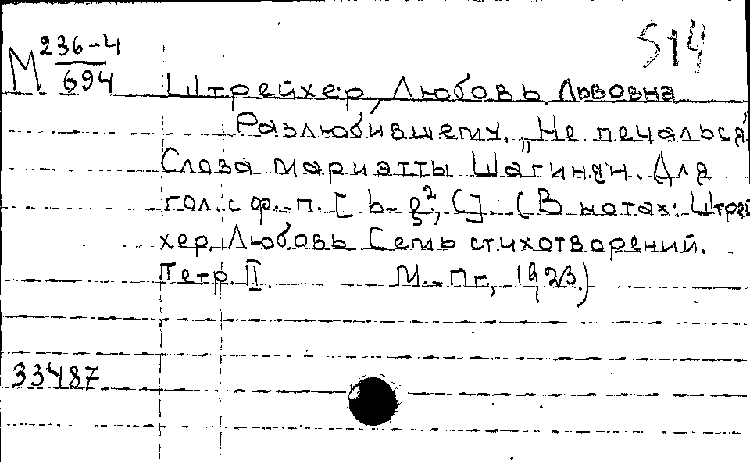 М 236-4/694
514
Штрейхер, Любовь Львовна
Разлюбившему. „Не печалься"
Слова Мариэтты Шагинян. Для
гол. с ф.-п. [b-g², C] (В нотах: Штрей
хер, Любовь Семь стихотворений.
Тетр. II. М.-Пг, 1923.)
33487